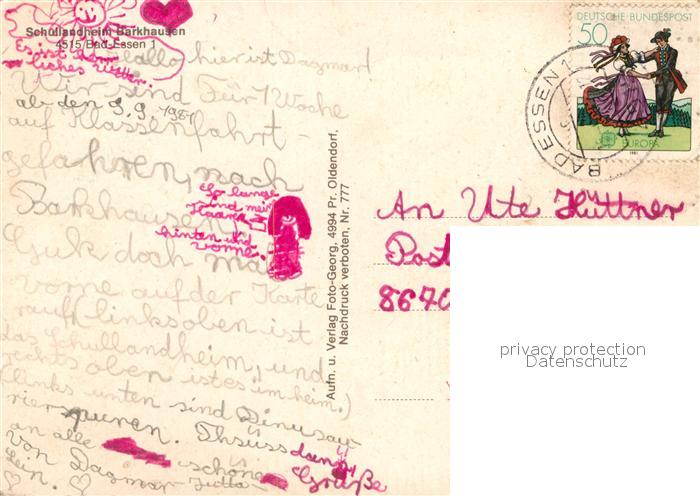 Schullandheim Barkhausen
4515 Bad-Essen 1
Hallo, hier ist Dagmar!
Wir sind Für 1 Woche
ab den 9.9. 1981
auf Klassenfahrt -
gefahren, nach
Barkhausen
Guck doch mal
vorne auf der Karte
rauf linksoben ist
das Schullandheim, und
rechts oben ist es im heim.)
(links unten sind Dinusau-
rierspuren. Thsüss dann
an alle schöne Grüße
von Dagmar Jutta-
lein.
Es ist
liches Wetter.
So lange
sind mein
Haare
hinten und
vorne.
Aufn. u. Verlag Foto-Georg, 4994 Pr. Oldendorf,
Nachdruck verboten, Nr. 777
DEUTSCHE BUNDESPOST
50
EUROPA
1981
BAD ESSEN 1
An Ute Hüttner
Post
8670
privacy protection
Datenschutz